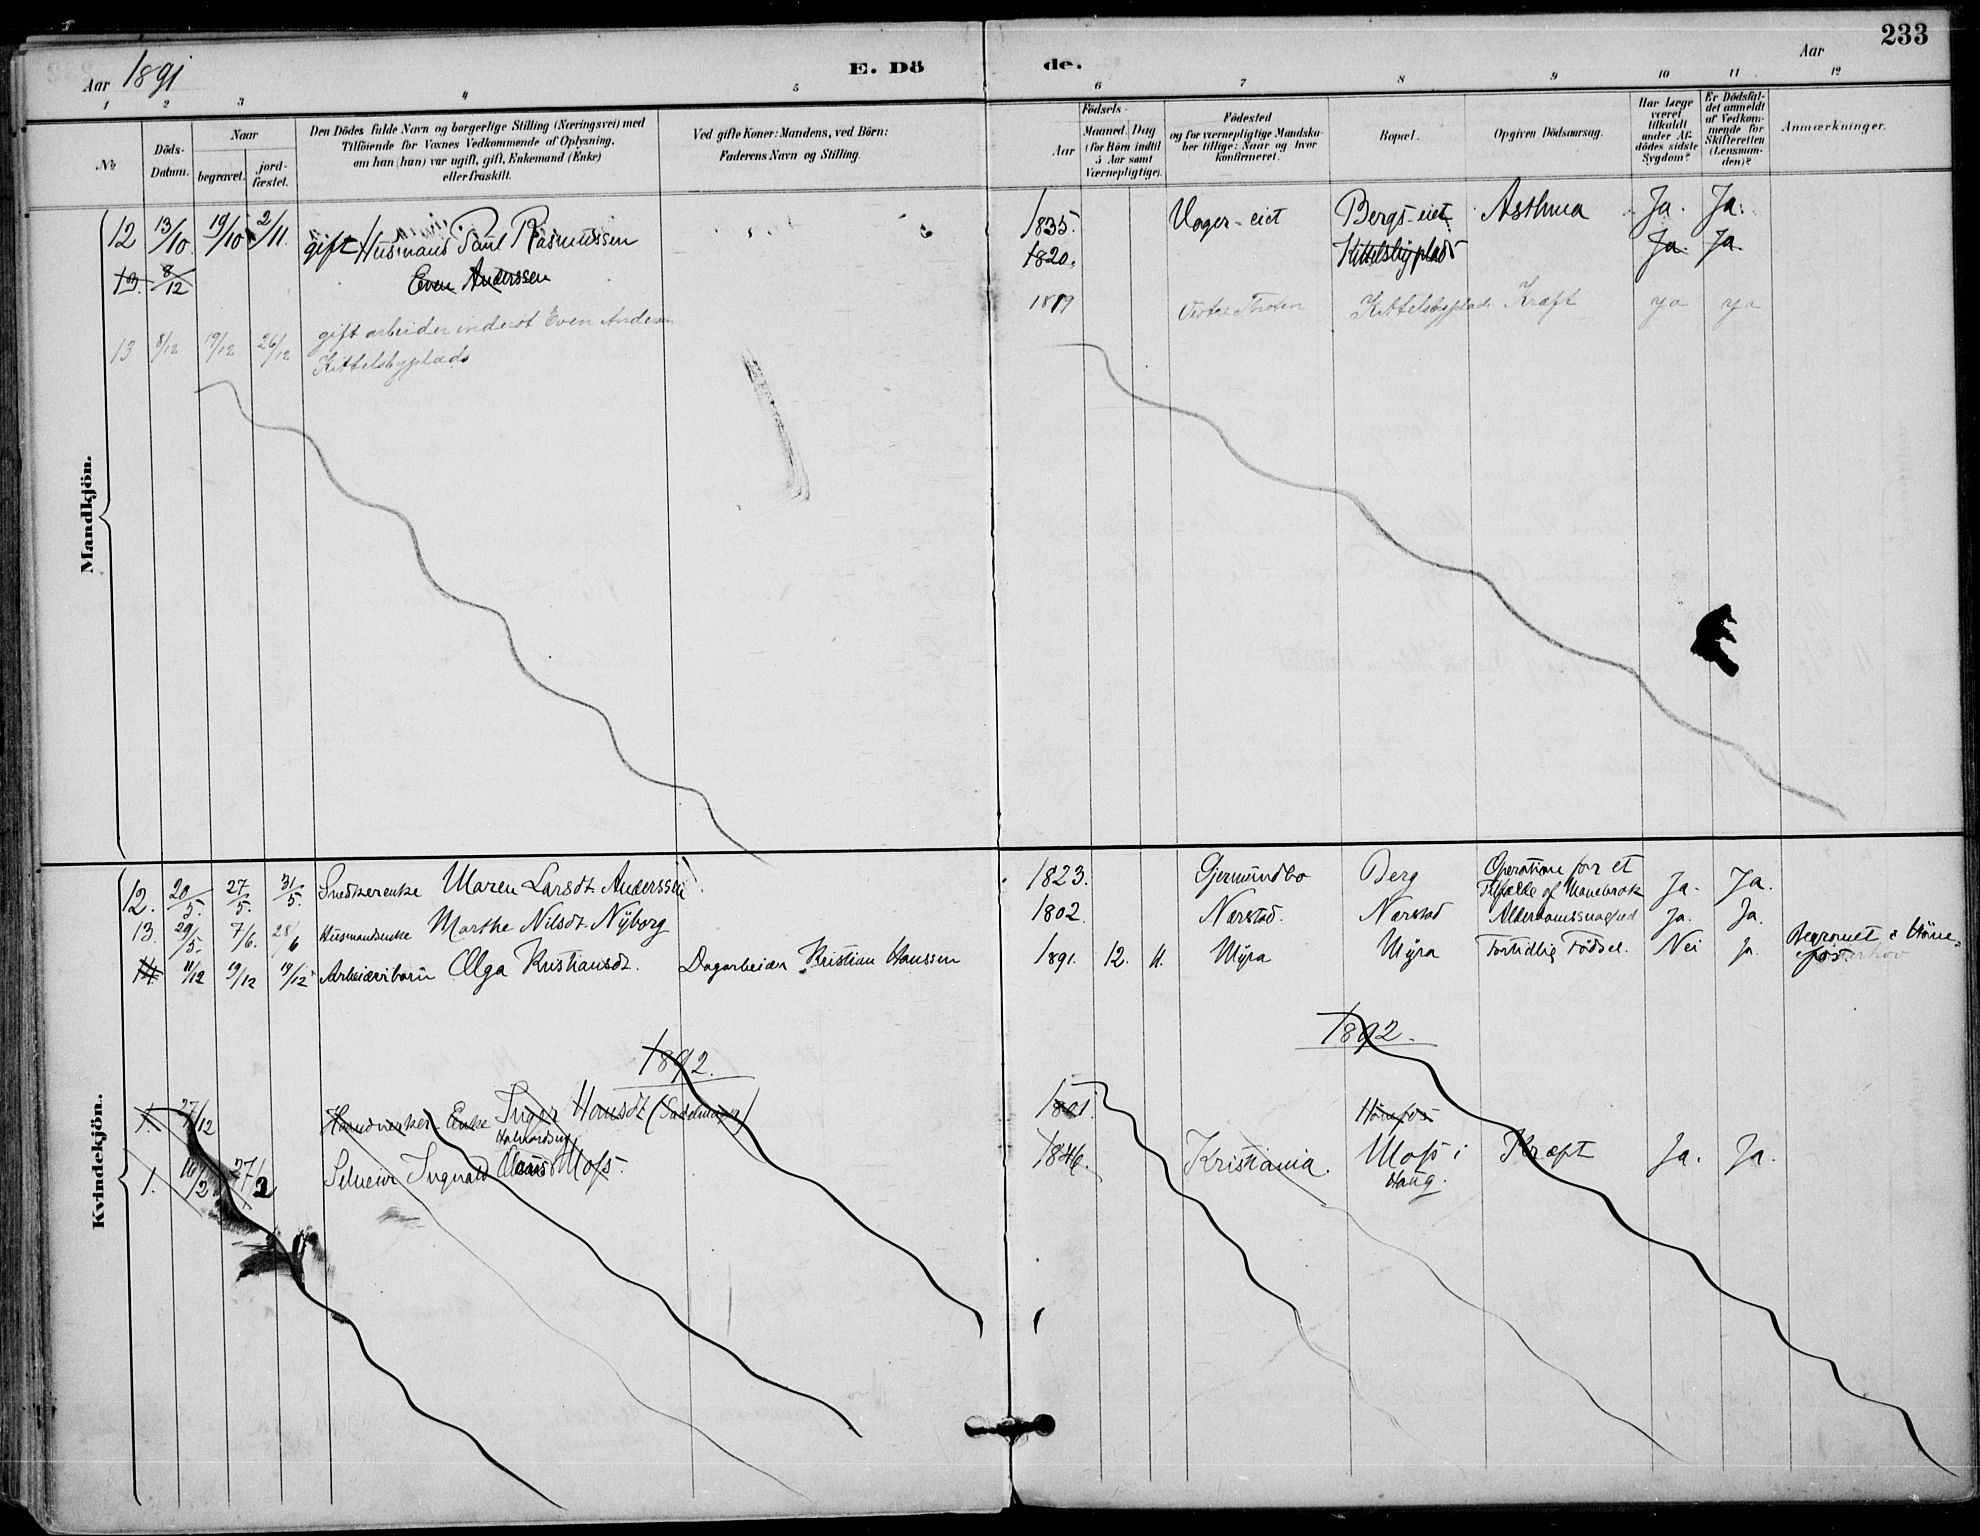 233
Aar 1891
E. Döde.
Aar
1 2 3 4 5 6 7 8 9 10 11 12
№
Döds-Datum.
Naar
begravet.
jord-fæstet.
Den Dödes fulde Navn og borgerlige Stilling (Næringsvei) med
Tilföiende for Voxnes Vedkommende af Oplysning,
om han (hun) var ugift, gift, Enkemand (Enke)
eller fraskilt.
Ved gifte Koner: Mandens, ved Börn:
Faderens Navn og Stilling.
Födsels-
Aar
Maaned. Dag
(for Börn indtil
5 Aar samt
Værnepligtige).
Födested
og for værnepligtige Mandska-
ber tillige: Naar og hvor
konfirmeret.
Bopæl.
Opgiven Dödsaarsag.
Har Læge
været
tilkaldt
under Af-
dödes sidste
Sygdom?
Er Dödsfal-
det anmeldt
af Vedkom-
mende for
Skifteretten
(Lensman-
den)?
Anmærkninger.
Mandkjön.
12 13/10 19/10 2/11. gift Husmand Paul Rasmussen 1835. Vager-eiet Bergs-eiet Asthma Ja. Ja.
13. 8/12 Even Anderssen 1820. Kittelsbyplads Ja. Ja
13 8/12 19/12 26/12 gift arbeider inderst Even Andersen 1819 Vestre Thoten Kittelsbyplads Kræft ya ya
Kittelsbyplads
Kvindekjön.
12. 20/5. 27/5. 31/5. Snedkerenke Maren Larsdt. Anderssen 1823. Gjermundbo Berg Operation for et Tilfælde af Ja. Ja.
13. 29/5. 7/6. 28/6 Husmandsenke Marthe Nilsdt. Nÿborg 1802. Nærstad. Nærstad Alderdomssvaghed Ja. Ja.
14. 11/12 19/12 19/12 Arbeiderbarn Olga Kristiansdt. Dagarbeider Kristian Hanssen 1891. 12. 11. Mÿra Mÿra Fortidlig Födsel. Nei Ja. Begravet i
1892. 1892.
1. 27/12 Haandverker-Enke Inger Hansdt 1801. Hönefos
1. 10/2 27/2 Ingvald Moss. 1846. Kristiania. Moss i Haug. Kræft Ja. Ja.